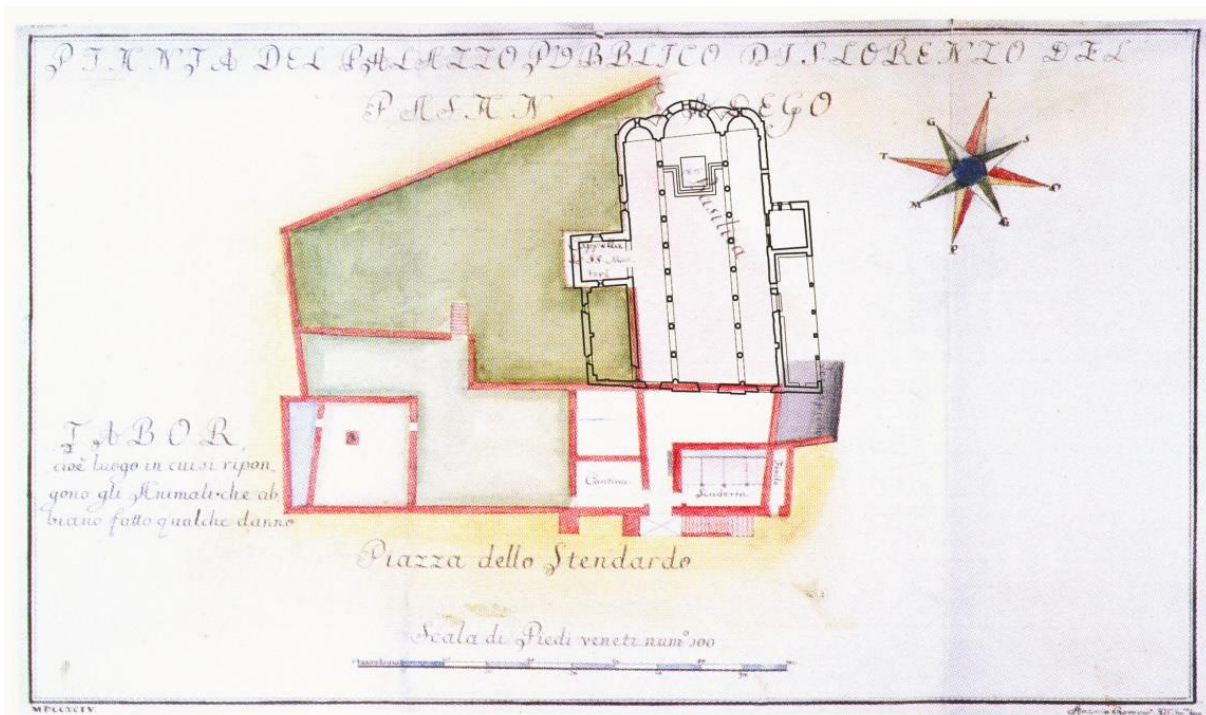 PIANTA DEL PALAZZO PUBBLICO DI S. LORENZO DEL
PASAN A DEGO
L
S
O
G
P
M
T
G
Basilica
Cappella
de SS. Mar
tori
TABOR,
cioè luogo in cui si ripon,
gono gli Animali che ab,
biano fatto qualche danno
Cantina
Scuderia
Piazza dello Stendardo
Scala di Piedi veneti num.o 100
MDCCXCIV.